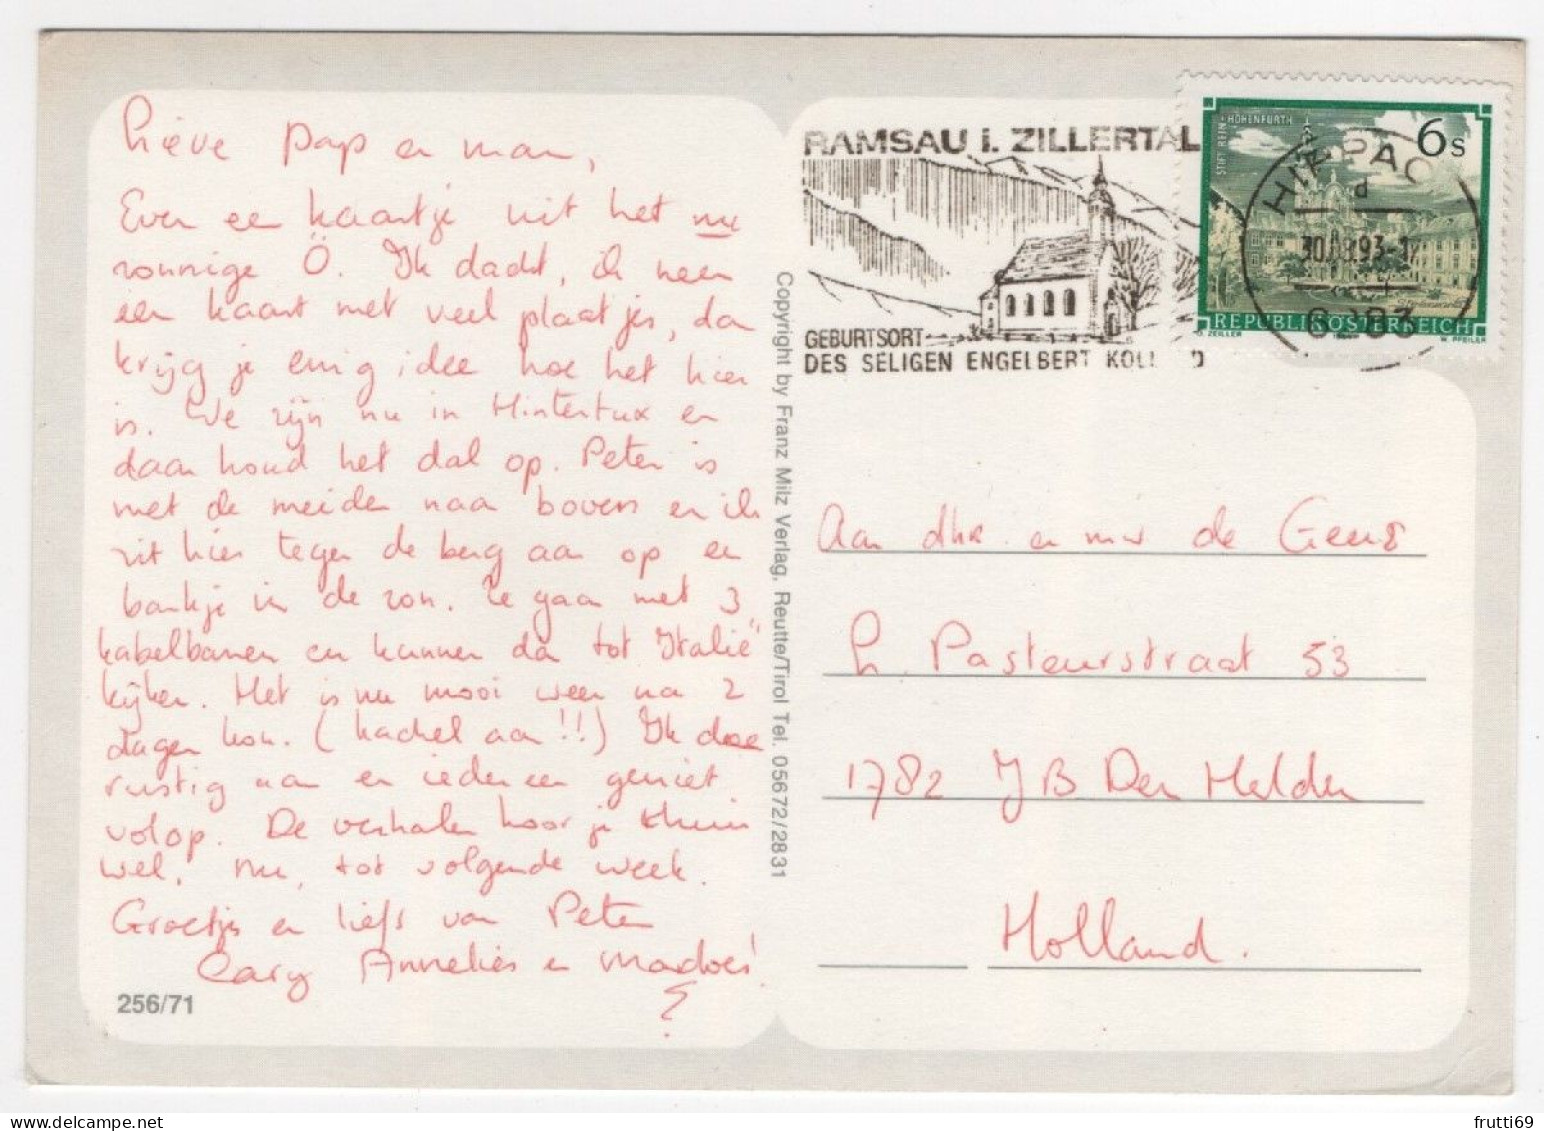 Lieve pap en mam,
Even een kaartje uit het nu
zonnige Ö. Ik dacht, ik neem
een kaart met veel plaatjes, dan
krijg je enig idee hoe het hier
is. We zijn nu in Hintertux en
daar houd het dal op. Peter is
met de meiden naar boven en ik
zit hier tegen de berg aan op een
bankje in de zon. Ze gaan met 3
kabelbanen en kunnen dan tot Italië
kijken. Het is nu mooi weer na 2
dagen kou. (kachel aan!!) Ik doe
rustig aan en iedereen geniet
volop. De verhalen hoor je thuis
wel. Nu, tot volgende week.
Groetjes en liefs van Peter
Cary Annelies en
256/71
Copyright by Franz Milz Verlag, Reutte/Tirol Tel. 05672/2831
RAMSAU i. ZILLERTAL
GEBURTSORT
DES SELIGEN ENGELBERT KOLL D
STIFT REIN-HOHENFURTH
6s
REPUBLIK ÖSTERREICH
O. ZEILLER W. PFEILER
HIPPAC
d
93-17
6283
Aan dhr. en mevr de Geus
L Pasteurstraat 53
1782 JB Den Helder
Holland.
frutti69